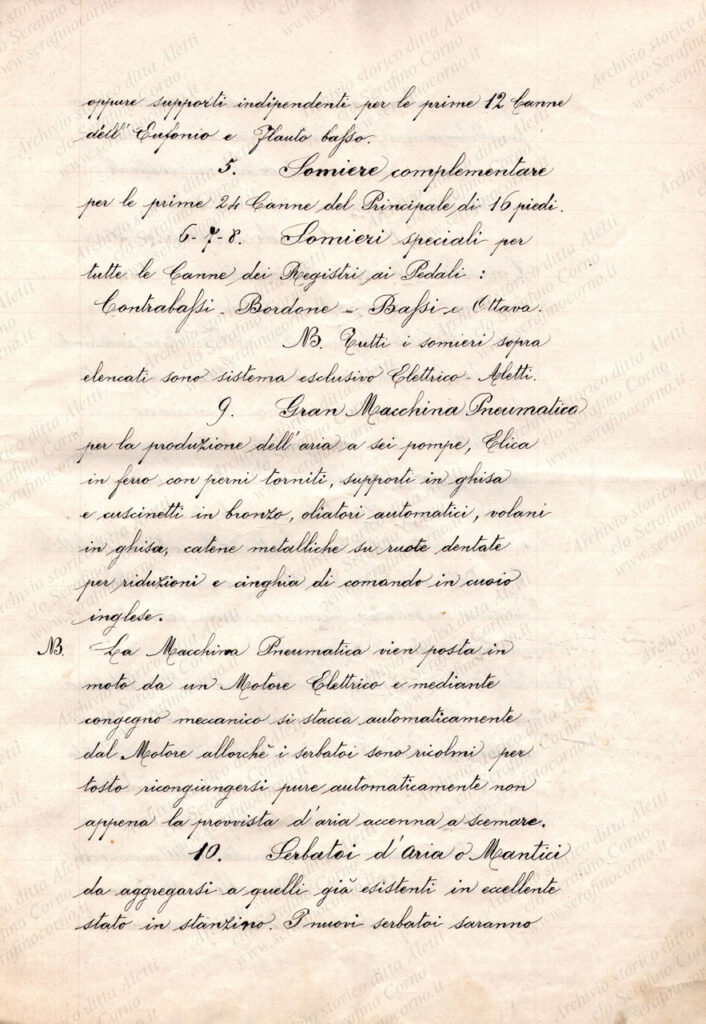 oppure supporti indipendenti per le prime 12 Canne
dell' Eufonio e Flauto basso.
5. Somiere complementare
per le prime 24 Canne del Principale di 16 piedi.
6-7-8. Somieri speciali per
tutte le Canne dei Registri ai Pedali :
Contrabassi - Bordone - Bassi e Ottava.
NB. Tutti i somieri sopra
elencati sono sistema esclusivo Elettrico-Aletti.
9. Gran Macchina Pneumatica
per la produzione dell'aria a sei pompe, Elica
in ferro con perni torniti, supporti in ghisa
e cuscinetti in bronzo, oliatori automatici, volani
in ghisa, catene metalliche su ruote dentate
per riduzioni e cinghia di comando in cuoio
inglese.
NB. La Macchina Pneumatica vien posta in
moto da un Motore Elettrico e mediante
congegno meccanico si stacca automaticamente
dal Motore allorchè i serbatoi sono ricolmi per
tosto ricongiungersi pure automaticamente non
appena la provvista d'aria accenna a scemare.
10. Serbatoi d'Aria o Mantici
da aggregarsi a quelli già esistenti in eccellente
stato in stanzino. I nuovi serbatoi saranno
Archivio storico ditta Aletti
c/o Serafino Corno
www.serafinocorno.it